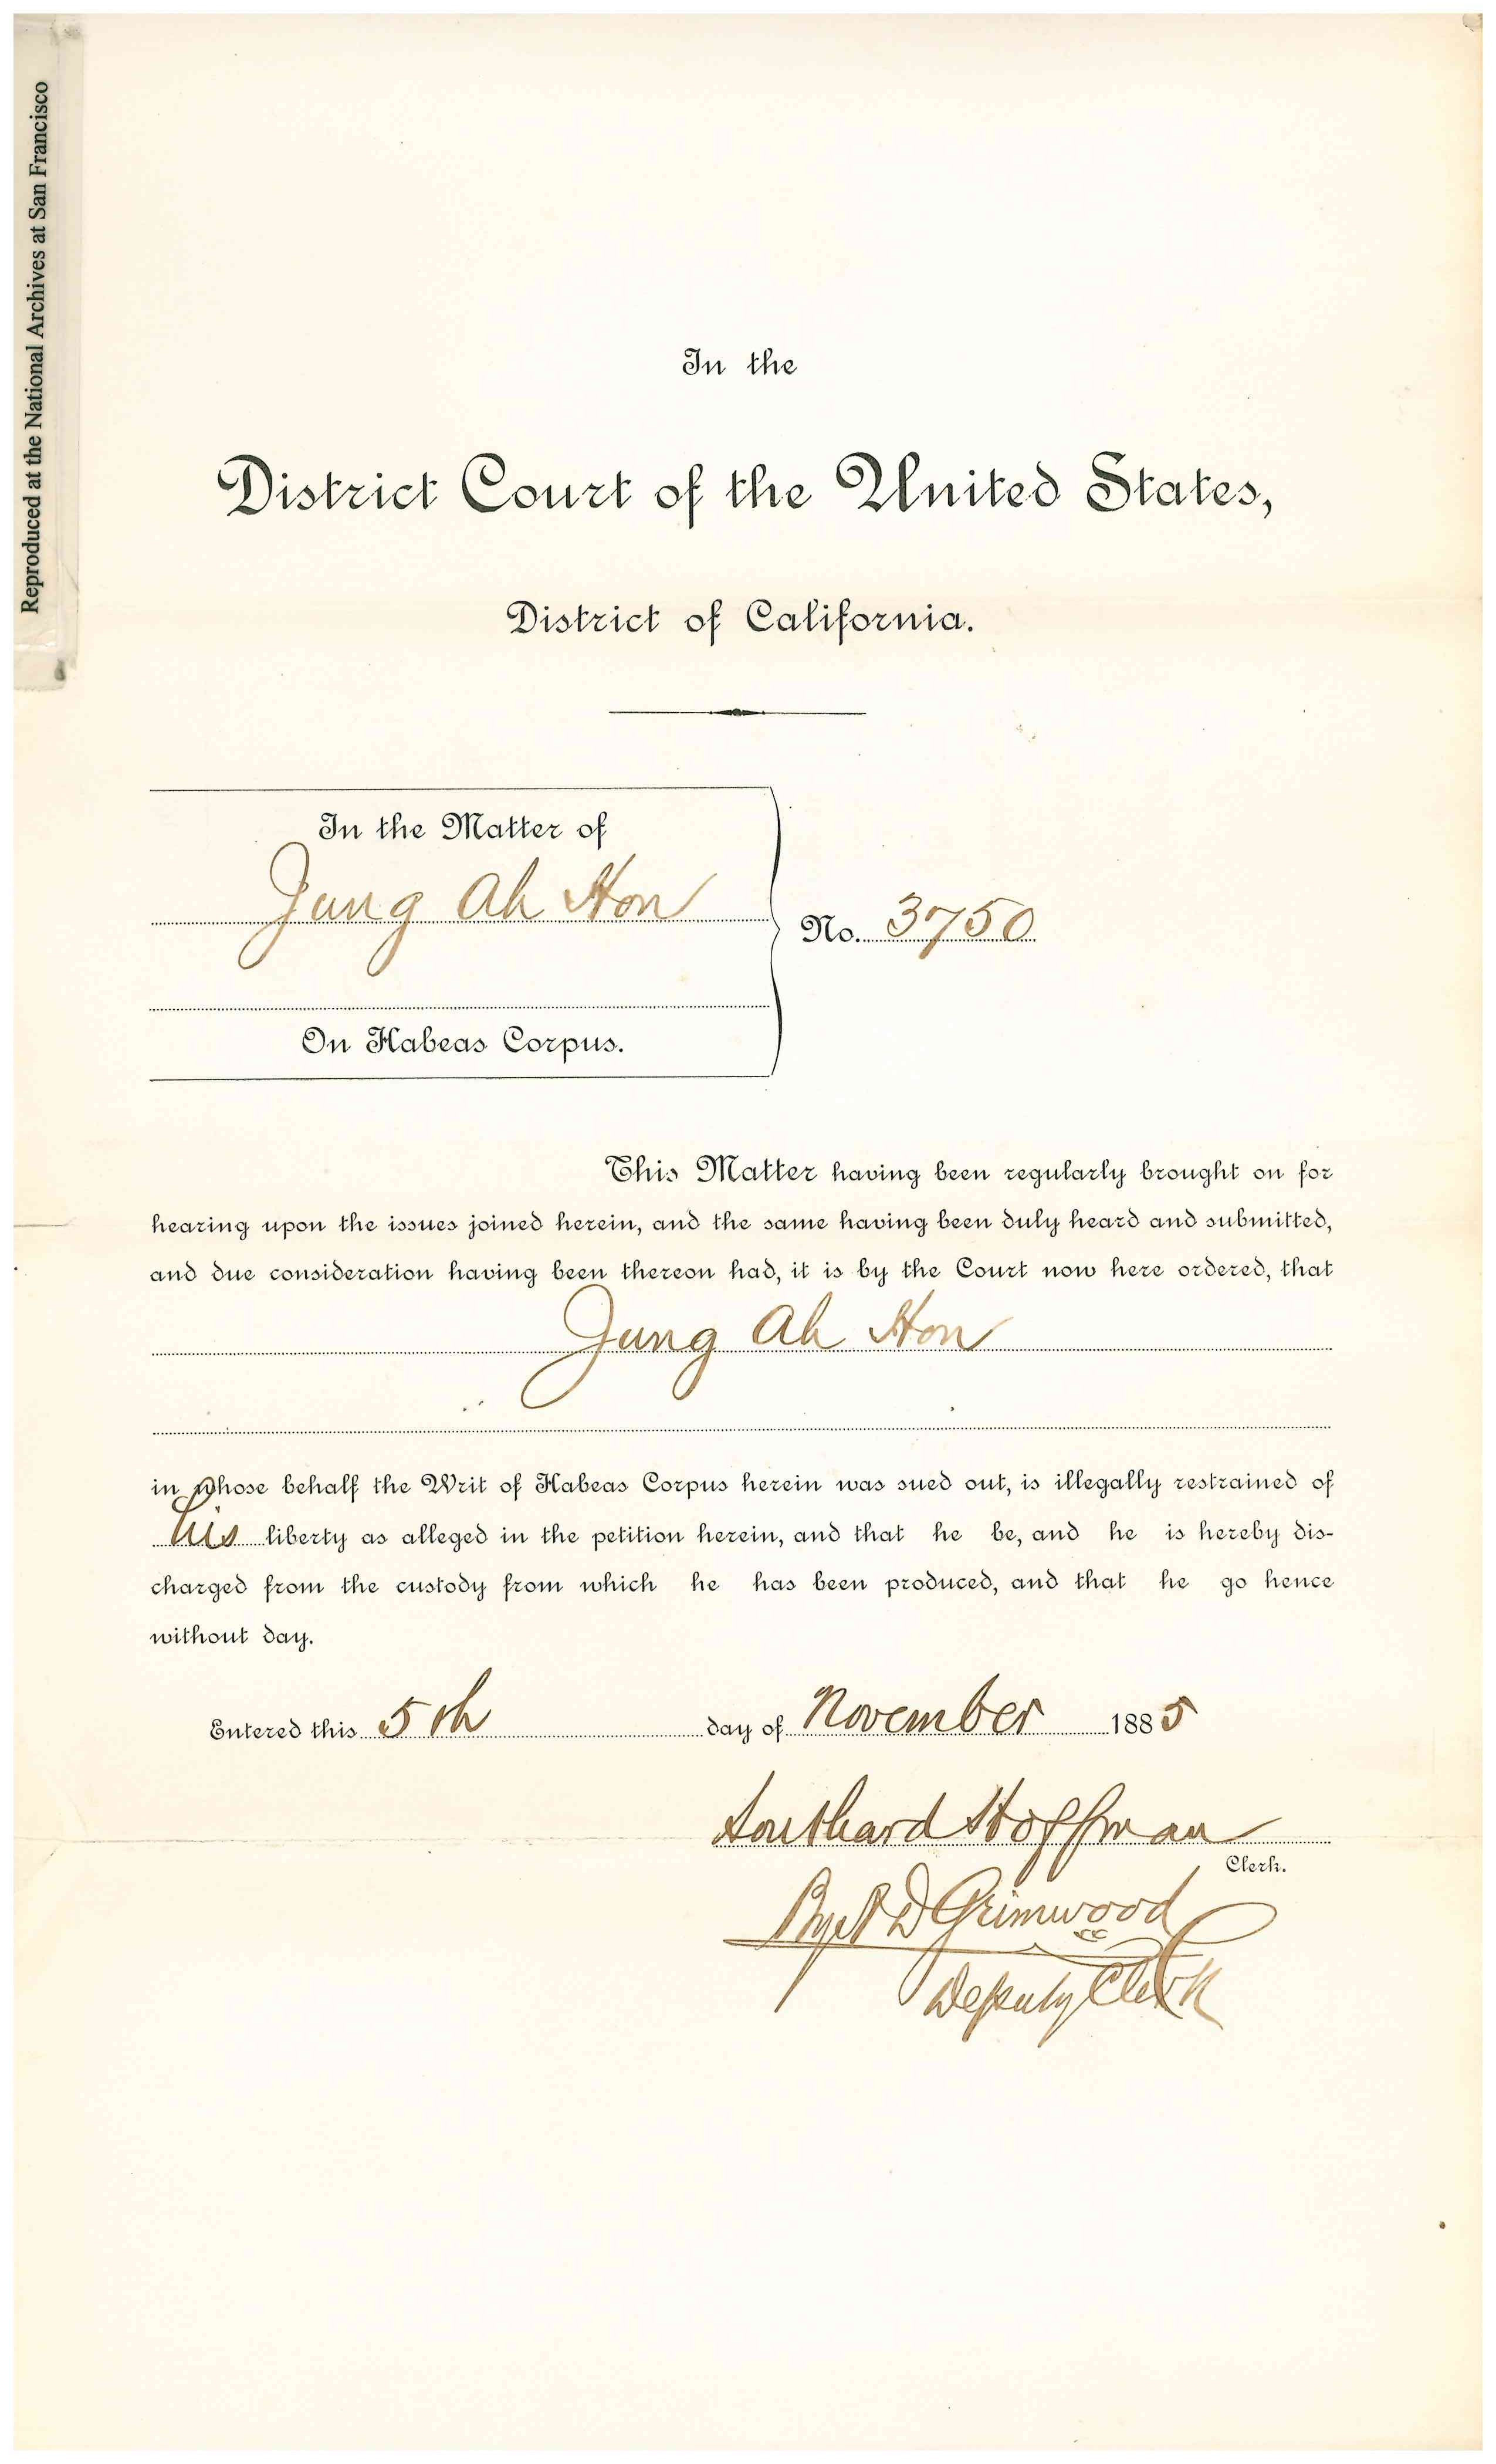 Reproduced at the National Archives at San Francisco
In the
District Court of the United States,
District of California.
In the Matter of
Jung Ah Hon
No. 3750
On Habeas Corpus.
This Matter having been regularly brought on for
hearing upon the issues joined herein, and the same having been duly heard and submitted,
and due consideration having been thereon had, it is by the Court now here ordered, that
Jung Ah Hon
in whose behalf the Writ of Habeas Corpus herein was sued out, is illegally restrained of
his liberty as alleged in the petition herein, and that he be, and he is hereby dis-
charged from the custody from which he has been produced, and that he go hence
without day.
Entered this 5th day of November 1885
Southard Hoffman
Clerk.
By D Grimwood
Deputy Clerk